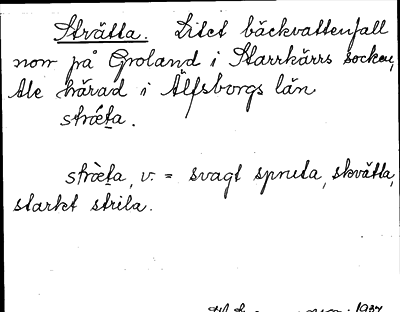 Strätta. Litet bäckvattenfall
norr på Groland i Starrkärrs socken,
Ale härad i Älfsborgs län
stræ̀ta.
stræ̀ta, v. = svagt spruta, skvätta,
starkt strila.
1937